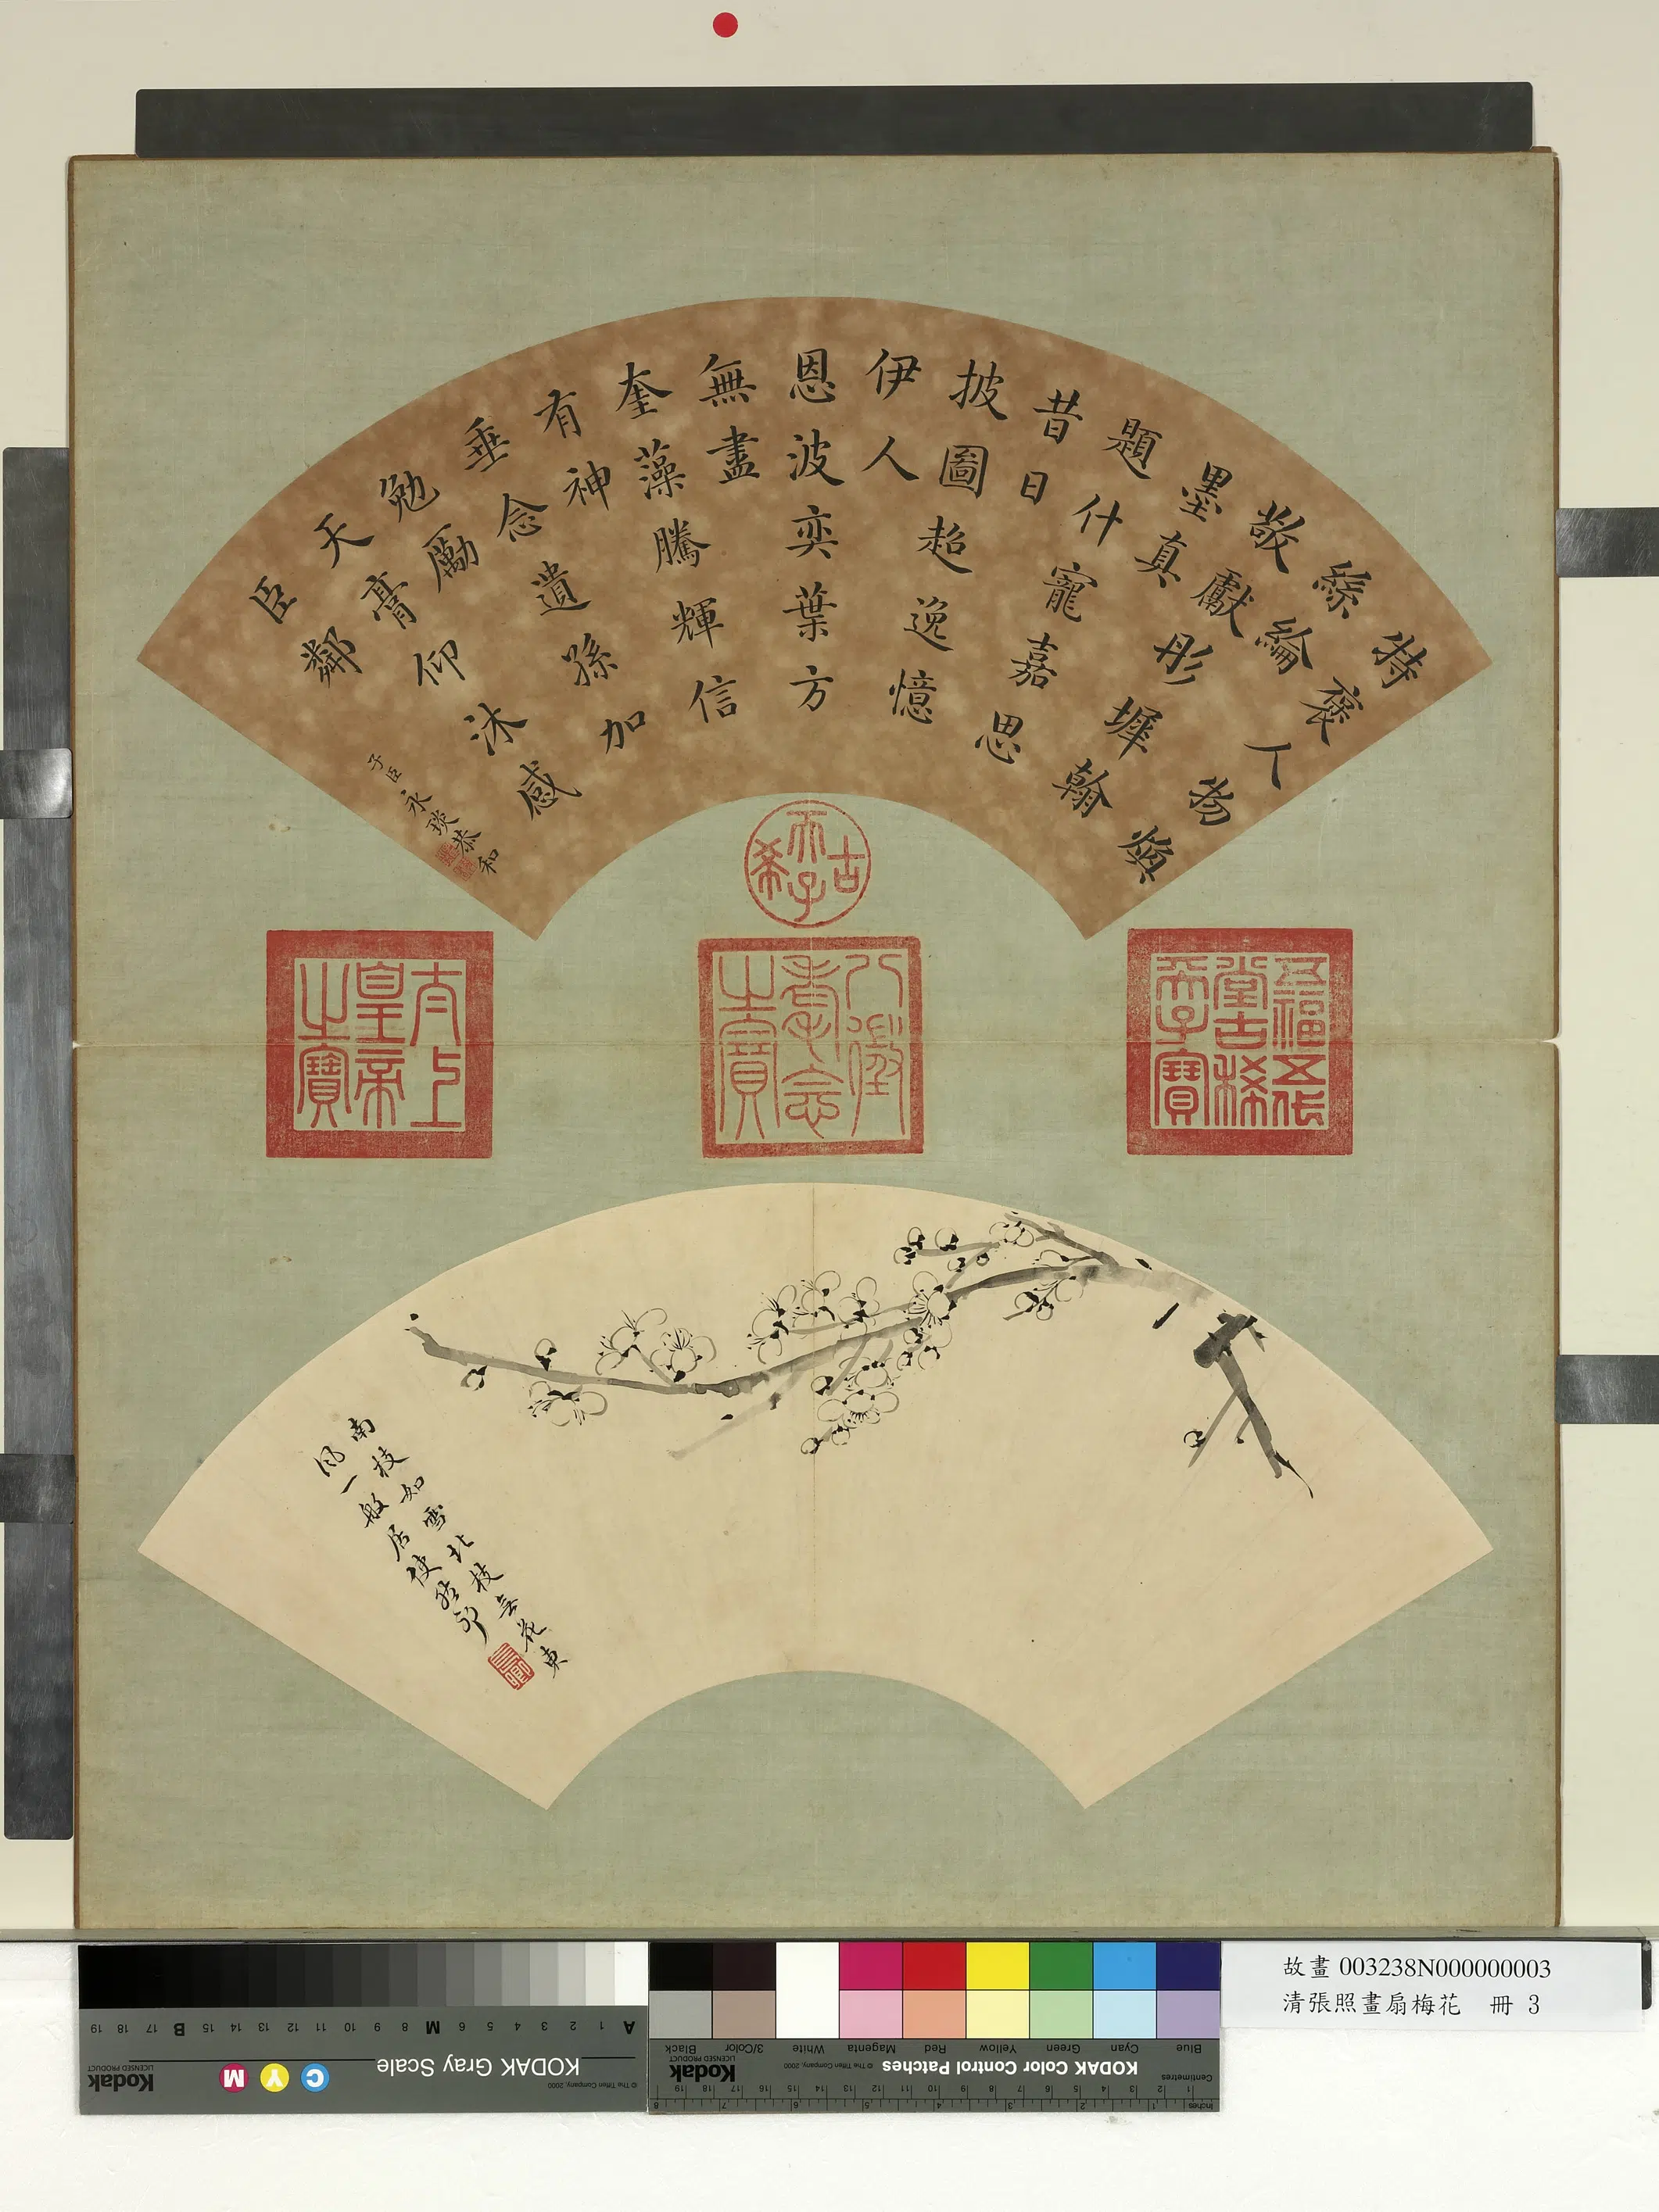 特褒人物煥
絲綸
敬獻彤墀翰
墨真
題什寵嘉思
昔日
披圖超逸憶
伊人
恩波奕葉方
無盡
奎藻騰輝信
有神
垂念遺孫加
勉勵
天膏仰沐感
臣鄰
子臣永琰恭和
古希天子
五福五代堂古稀天子寶
八徵耄念之寶
太上皇帝之寶
南枝如雪北枝無花東
風一般居使然耶
故畫 003238N000000003
清張照畫扇梅花 冊 3
KODAK Gray Scale
Kodak
LICENSED PRODUCT
© The Tiffen Company, 2000
C Y M
A 1 2 3 4 5 6 M 8 9 10 11 12 13 14 15 B 17 18 19
KODAK Color Control Patches
© The Tiffen Company, 2000
Kodak
LICENSED PRODUCT
Blue Cyan Green Yellow Red Magenta White 3/Color Black
Centimetres
Inches